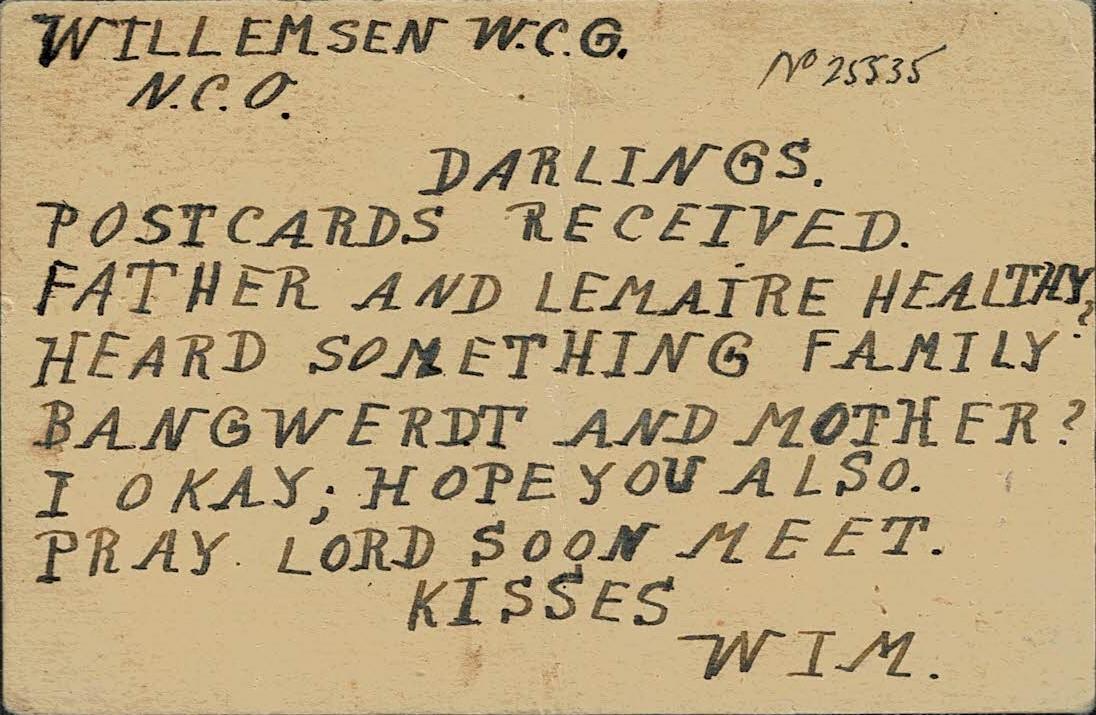 WILLEMSEN W.C.G.
No 25535
N.C.O.
DARLINGS.
POSTCARDS RECEIVED.
FATHER AND LEMAIRE HEALTHY,
HEARD SOMETHING FAMILY
BANGWERDT AND MOTHER?
I OKAY; HOPE YOU ALSO.
PRAY LORD SOON MEET.
KISSES
WIM.